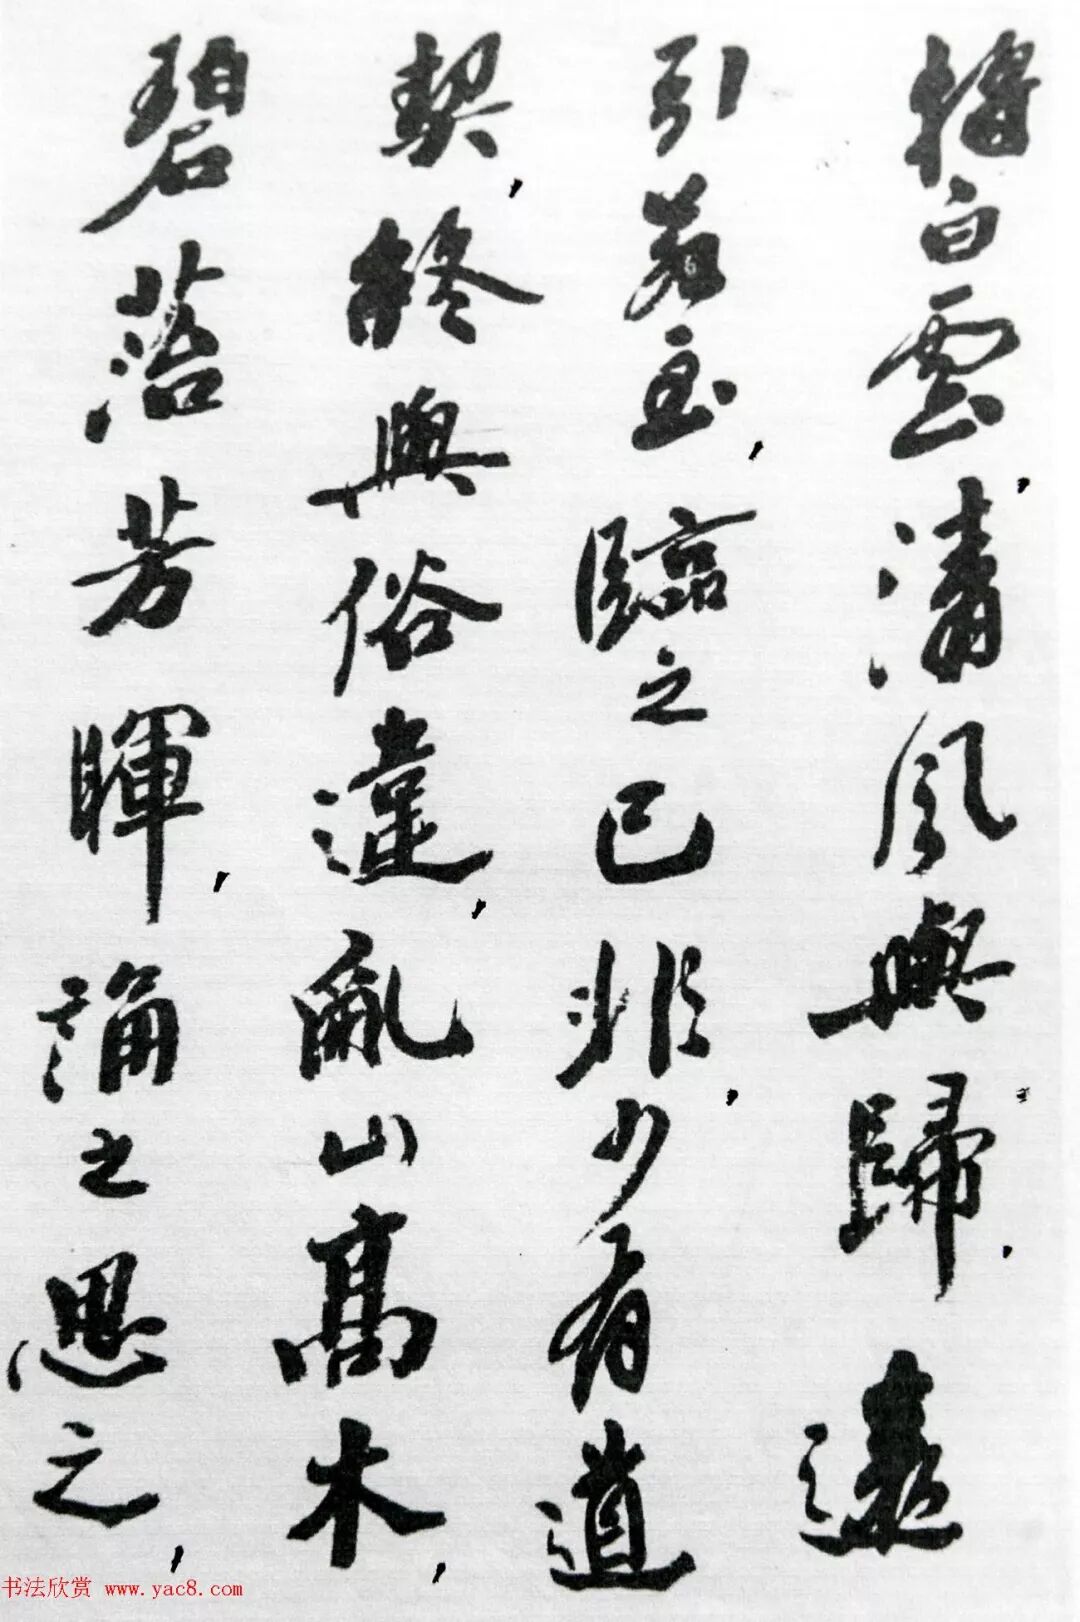 將白雲,清風與歸.遠
引若至,臨之已非,少有道
契,終與俗違,亂山高木,
碧落芳暉,誦之思之,
书法欣赏 www.yac8.com